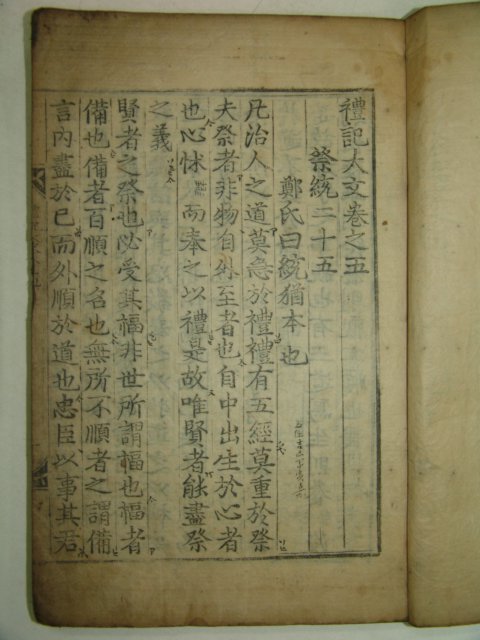 禮記大文卷之五
祭統二十五
鄭氏曰統猶本也
凡治人之道莫急於禮禮有五經莫重於祭
夫祭者非物自外至者也自中出生於心者
也心怵而奉之以禮是故唯賢者能盡祭
之義
賢者之祭也必受其福非世所謂福也福者
備也備者百順之名也無所不順者之謂備
言內盡於己而外順於道也忠臣以事其君